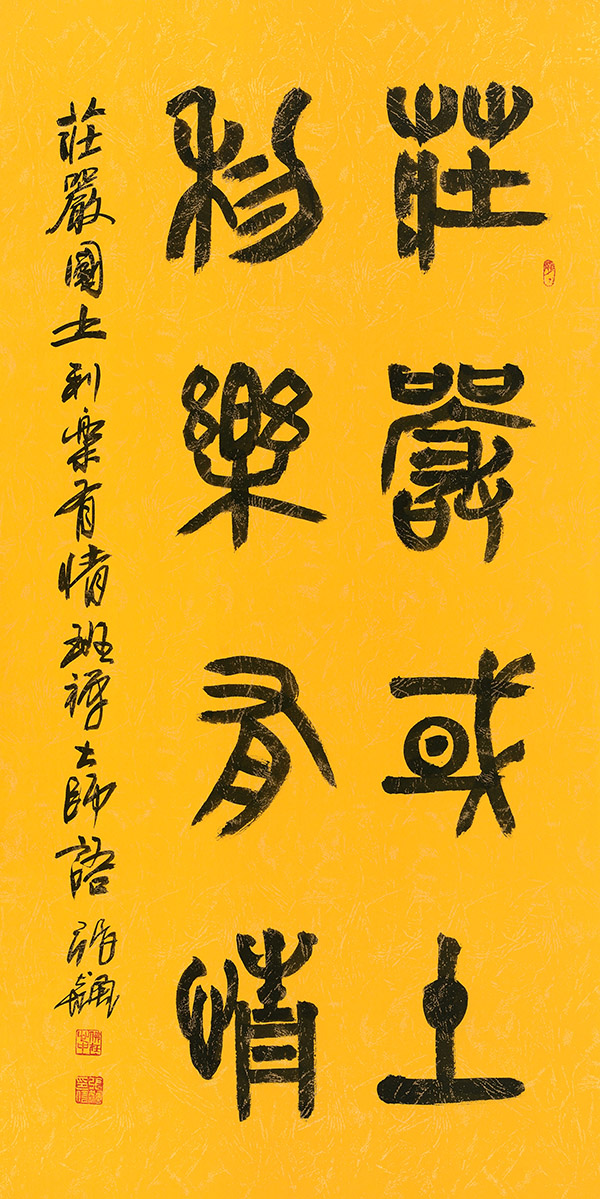 莊嚴或土
利樂有情
莊嚴國土利樂有情班禪大師語